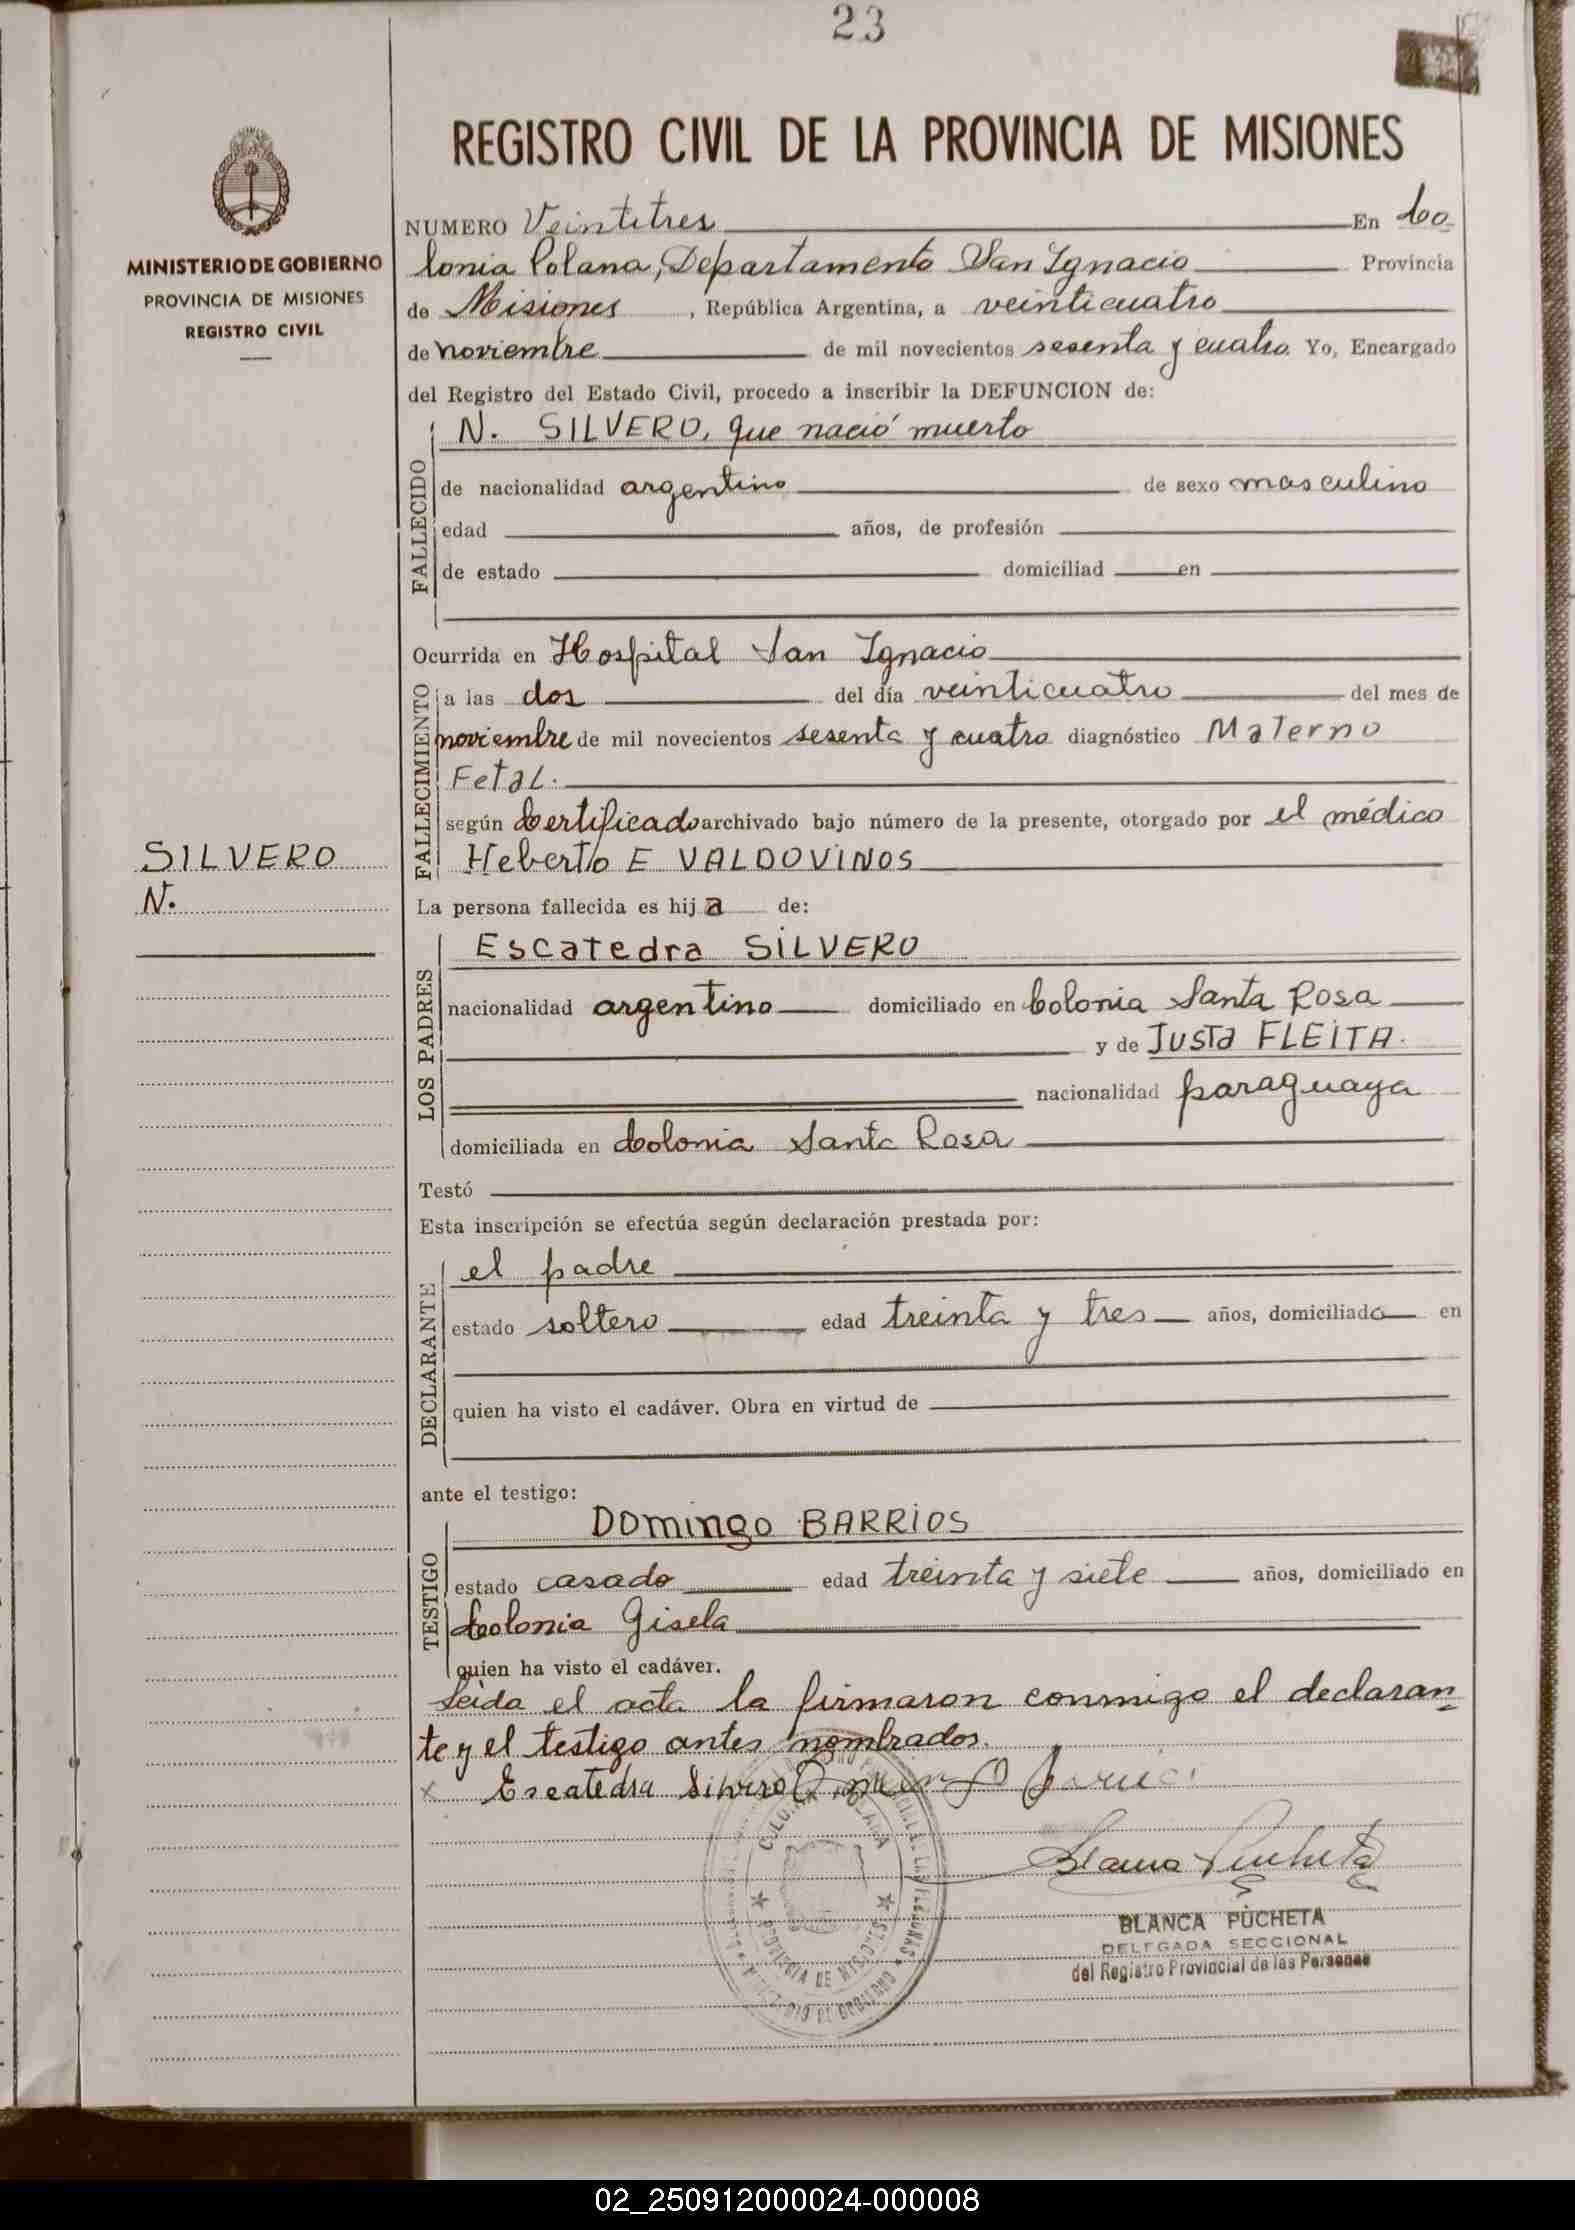 23
REGISTRO CIVIL DE LA PROVINCIA DE MISIONES
MINISTERIO DE GOBIERNO
PROVINCIA DE MISIONES
REGISTRO CIVIL
NUMERO Veintitres En Co
lonia Polana, Departamento San Ignacio Provincia
de Misiones, República Argentina, a veinticuatro
de noviembre de mil novecientos sesenta y cuatro. Yo, Encargado
del Registro del Estado Civil, procedo a inscribir la DEFUNCION de:
FALLECIDO
N. SILVERO, que nació muerto
de nacionalidad argentino de sexo masculino
edad años, de profesión
de estado domiciliad en
Ocurrida en Hospital San Ignacio
FALLECIMIENTO
a las dos del día veinticuatro del mes de
noviembre de mil novecientos sesenta y cuatro diagnóstico Materno
Fetal.
según Certificado archivado bajo número de la presente, otorgado por el médico
Heberto E VALDOVINOS
SILVERO
N.
La persona fallecida es hija de:
LOS PADRES
Escatedra SILVERO
nacionalidad argentino domiciliado en Colonia Santa Rosa
y de Justa FLEITA.
nacionalidad paraguaya
domiciliada en Colonia Santa Rosa
Testó
Esta inscripción se efectúa según declaración prestada por:
DECLARANTE
el padre
estado soltero edad treinta y tres años, domiciliado en
quien ha visto el cadáver. Obra en virtud de
ante el testigo:
TESTIGO
Domingo BARRIOS
estado casado edad treinta y siete años, domiciliado en
Colonia Gisela
quien ha visto el cadáver.
Leida el acta la firmaron conmigo el declaran
te y el testigo antes nombrados.
x Escatedra Silvero
Blanca Pucheta
BLANCA PUCHETA
DELEGADA SECCIONAL
del Registro Provincial de las Personas
COLONIA POLANA
PROVINCIA DE MISIONES
MINISTERIO DE GOBIERNO
02_250912000024-000008